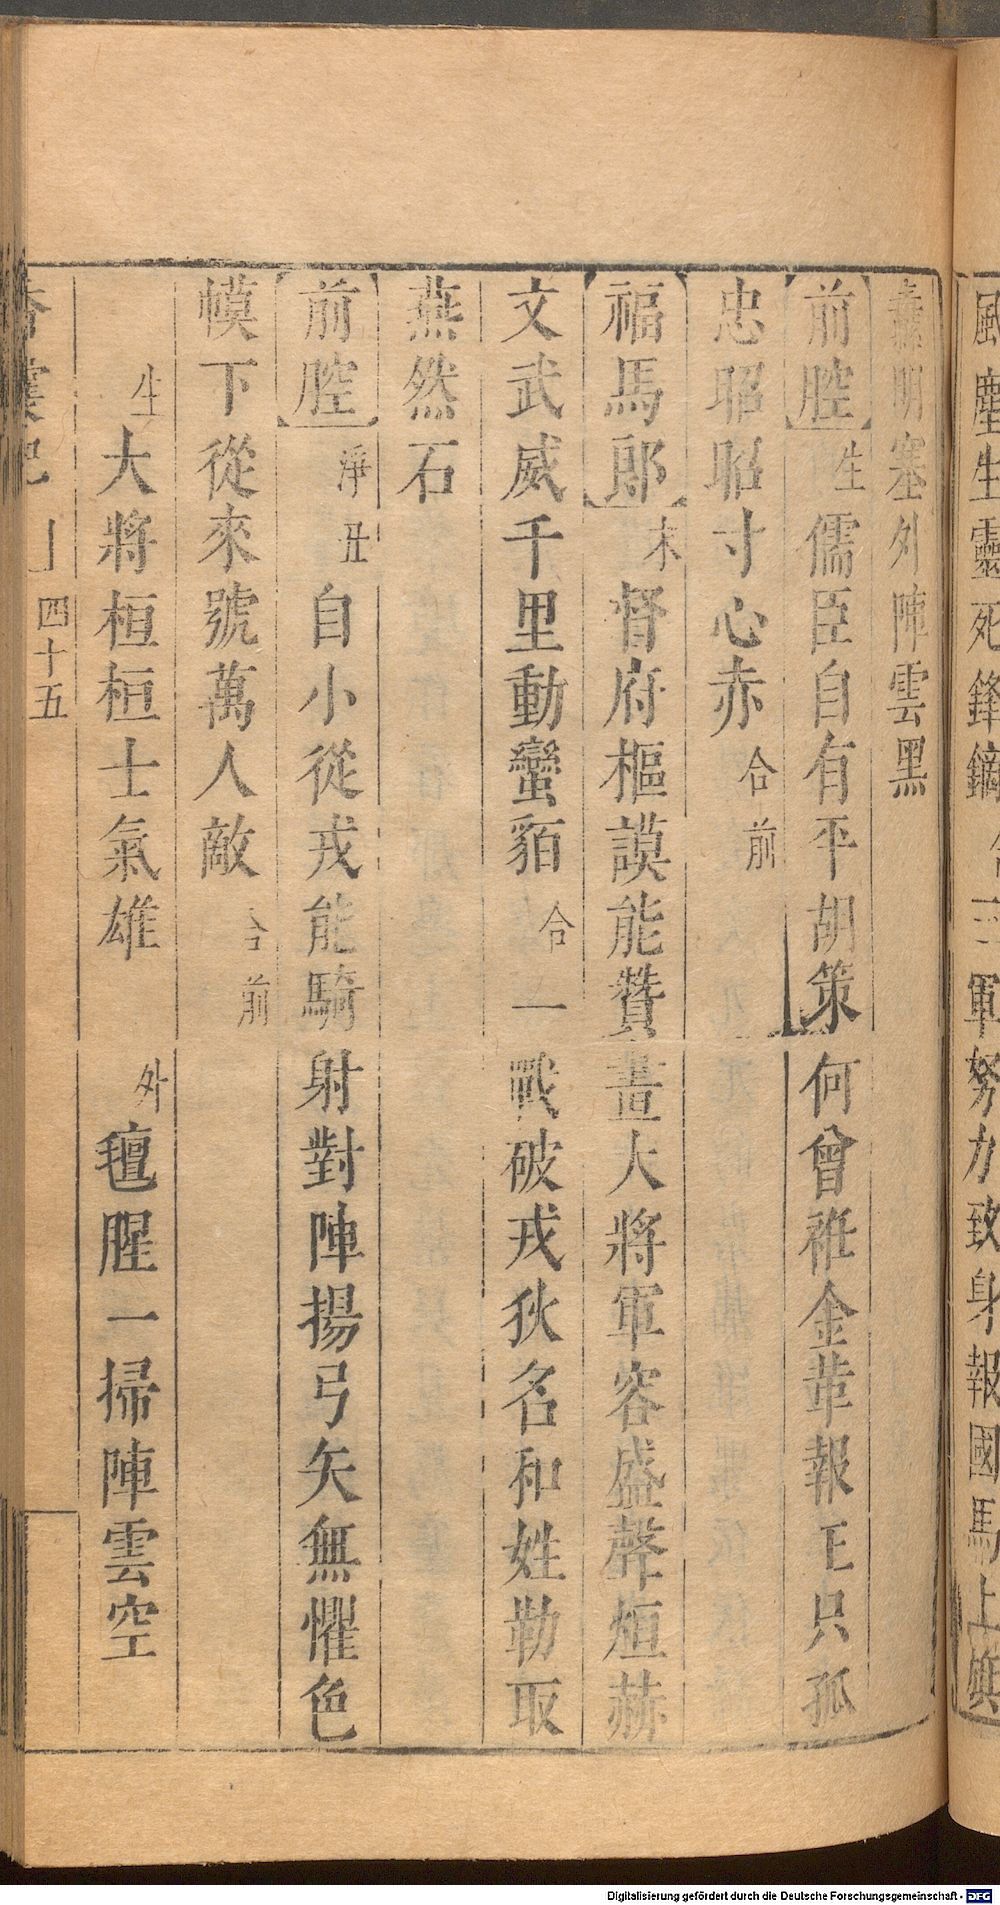 風塵生靈死鋒鏑 三軍努力致身報國馬上
纛明塞外陣雲黑
前腔 生 儒臣自有平胡策何曾袵金革報王只孤
忠昭昭寸心赤 合前
福馬郎 末 督府樞謨能贊畫大將軍容盛聲烜赫
文武威千里動蠻貊 合 一戰破戎狄名和姓勒取
燕然石
前腔 淨丑 自小從戎能騎射對陣揚弓矢無懼色
幙下從來號萬人敵 合前
生 大將桓桓士氣雄 外 氊腥一掃陣雲空
香囊記 四十五
Digitalisierung gefördert durch die Deutsche Forschungsgemeinschaft - DFG